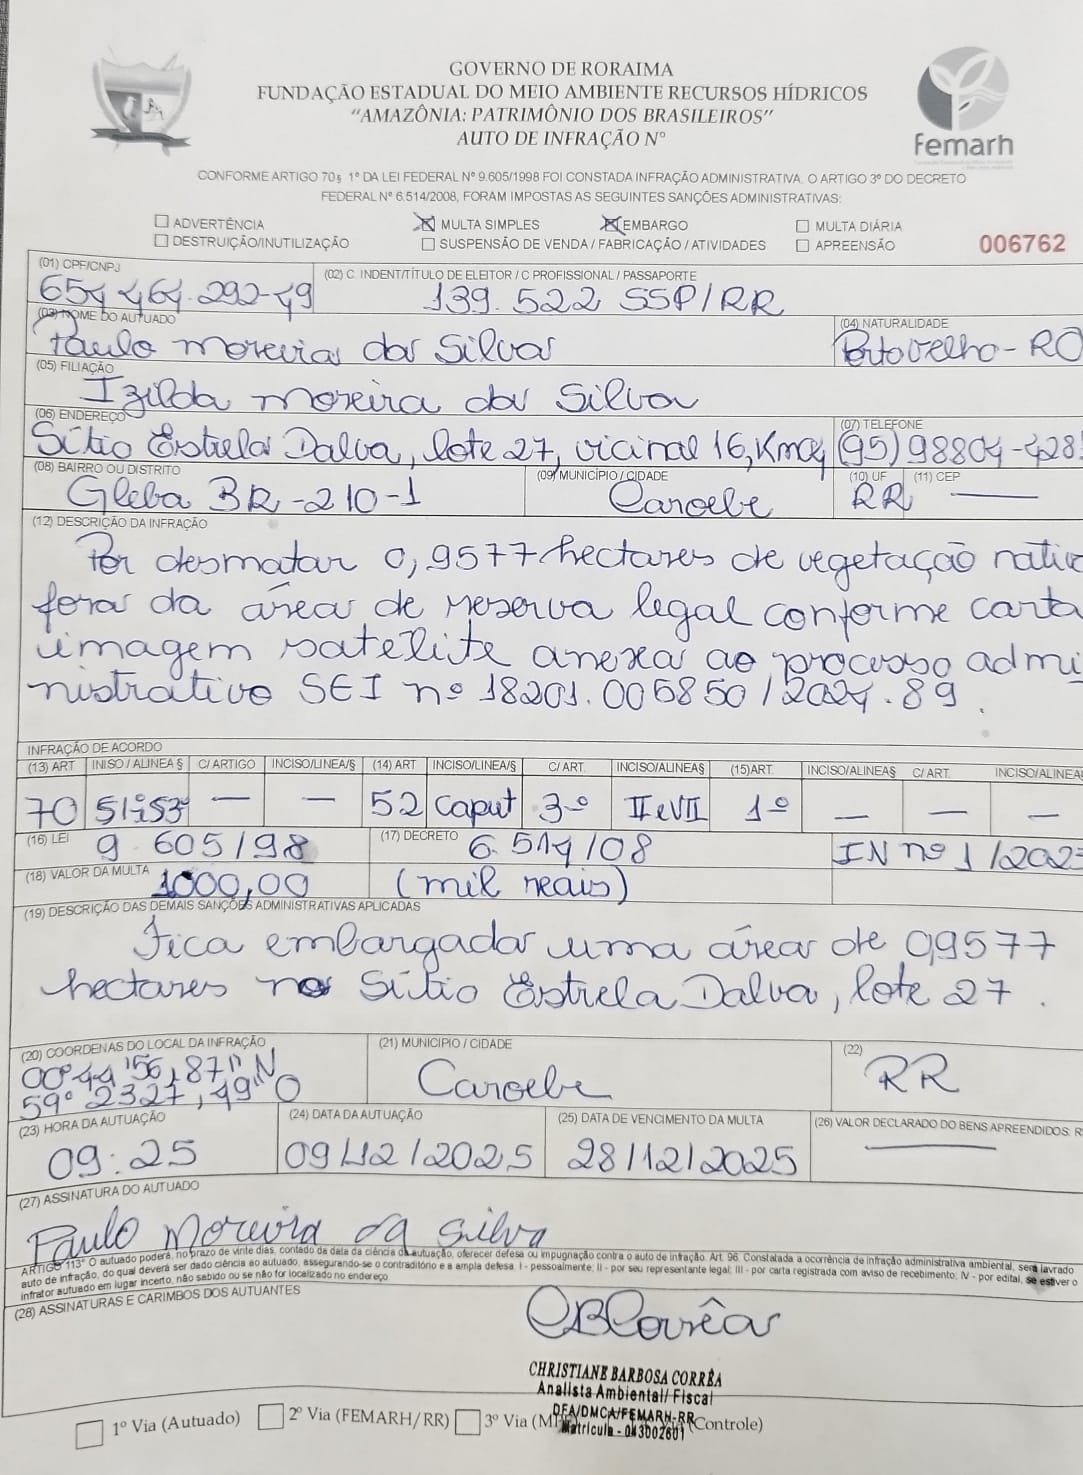 GOVERNO DE RORAIMA
FUNDAÇÃO ESTADUAL DO MEIO AMBIENTE RECURSOS HÍDRICOS
“AMAZÔNIA: PATRIMÔNIO DOS BRASILEIROS”
AUTO DE INFRAÇÃO N°
femarh
CONFORME ARTIGO 70§ 1º DA LEI FEDERAL Nº 9.605/1998 FOI CONSTADA INFRAÇÃO ADMINISTRATIVA. O ARTIGO 3º DO DECRETO
FEDERAL Nº 6.514/2008, FORAM IMPOSTAS AS SEGUINTES SANÇÕES ADMINISTRATIVAS:
ADVERTÊNCIA MULTA SIMPLES EMBARGO MULTA DIÁRIA
DESTRUIÇÃO/INUTILIZAÇÃO SUSPENSÃO DE VENDA / FABRICAÇÃO / ATIVIDADES APREENSÃO 006762
(01) CPF/CNPJ (02) C. INDENT/TÍTULO DE ELEITOR / C PROFISSIONAL / PASSAPORTE
654 464.292-49 139.522 SSP/RR
(03) NOME DO AUTUADO (04) NATURALIDADE
Paulo Moreira da Silva Porto Velho - RO
(05) FILIAÇÃO
Izilda Moreira da Silva
(06) ENDEREÇO (07) TELEFONE
Sítio Estrela Dalva, lote 27, vicinal 16, Km 04 (95) 98804-428
(08) BAIRRO OU DISTRITO (09) MUNICÍPIO / CIDADE (10) UF (11) CEP
Gleba BR-210-1 Caroebe RR —
(12) DESCRIÇÃO DA INFRAÇÃO
Por desmatar 0,9577 hectares de vegetação nativa
fora da área de reserva legal conforme carta
imagem satelite anexa ao processo admi
nistrativo SEI nº 18201.005850/2024.89.
INFRAÇÃO DE ACORDO
(13) ART INISO / ALINEA § C/ ARTIGO INCISO/LINEA/§ (14) ART INCISO/LINEA/§ C/ ART. INCISO/ALINEA§ (15) ART. INCISO/ALINEA§ C/ ART. INCISO/ALINEA
70 — — 52 caput 3º II e VII 1º — — —
(16) LEI (17) DECRETO
9.605/98 6.514/08 IN nº 1/2023
(18) VALOR DA MULTA
1000,00 (mil reais)
(19) DESCRIÇÃO DAS DEMAIS SANÇÕES ADMINISTRATIVAS APLICADAS
Fica embargada uma área de 0,9577
hectares no Sítio Estrela Dalva, lote 27.
(20) COORDENAS DO LOCAL DA INFRAÇÃO (21) MUNICIPIO / CIDADE (22)
00°44'56,87"N
59° 23 27,49" O Caroebe RR
(23) HORA DA AUTUAÇÃO (24) DATA DA AUTUAÇÃO (25) DATA DE VENCIMENTO DA MULTA (26) VALOR DECLARADO DO BENS APREENDIDOS: R
09:25 09/12/2025 28/12/2025 —
(27) ASSINATURA DO AUTUADO
Paulo Moreira da Silva
ARTIGO 113º O autuado poderá, no prazo de vinte dias, contado da data da ciência da autuação, oferecer defesa ou impugnação contra o auto de infração. Art. 96. Constatada a ocorrência de infração administrativa ambiental, será lavrado
auto de infração, do qual deverá ser dado ciência ao autuado, assegurando-se o contraditório e a ampla defesa. I - pessoalmente; II - por seu representante legal; III - por carta registrada com aviso de recebimento; IV - por edital, se estiver o
infrator autuado em lugar incerto, não sabido ou se não for localizado no endereço.
(28) ASSINATURAS E CARIMBOS DOS AUTUANTES
CBCorrêa
CHRISTIANE BARBOSA CORRÊA
Analista Ambiental/ Fiscal
DFA/DMCA/FEMARH-RR
Matrícula - 043002601
1º Via (Autuado) 2º Via (FEMARH/RR) 3º Via (Controle)